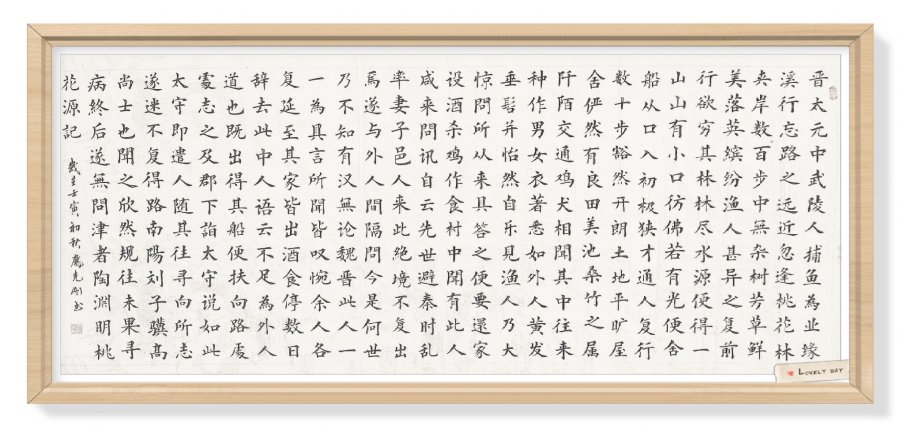 晋太元中武陵人捕鱼為业缘
溪行忘路之远近忽逢桃花林
夹岸数百步中無杂树芳草鲜
美落英缤纷渔人甚异之复前
行欲穷其林林尽水源便得一
山山有小口彷佛若有光便舍
船从口入初极狭才通人复行
数十步豁然开朗土地平旷屋
舍俨然有良田美池桑竹之属
阡陌交通鸡犬相聞其中往来
种作男女衣著悉如外人黄发
垂髫并怡然自乐见渔人乃大
惊問所从来具答之便要還家
设酒杀鸡作食村中聞有此人
咸来問讯自云先世避秦时乱
率妻子邑人来此绝境不复出
焉遂与外人間隔問今是何世
乃不知有汉無论魏晋此人一
一為具言所聞皆叹惋余人各
复延至其家皆出酒食停数日
辞去此中人语云不足為外人
道也既出得其船便扶向路處
處志之及郡下詣太守说如此
太守即遣人随其往寻向所志
遂迷不复得路南陽刘子骥高
尚士也聞之欣然规往未果寻
病终后遂無問津者陶渊明桃
花源記
歲在壬寅初秋龐克刚书
LOVELY DAY